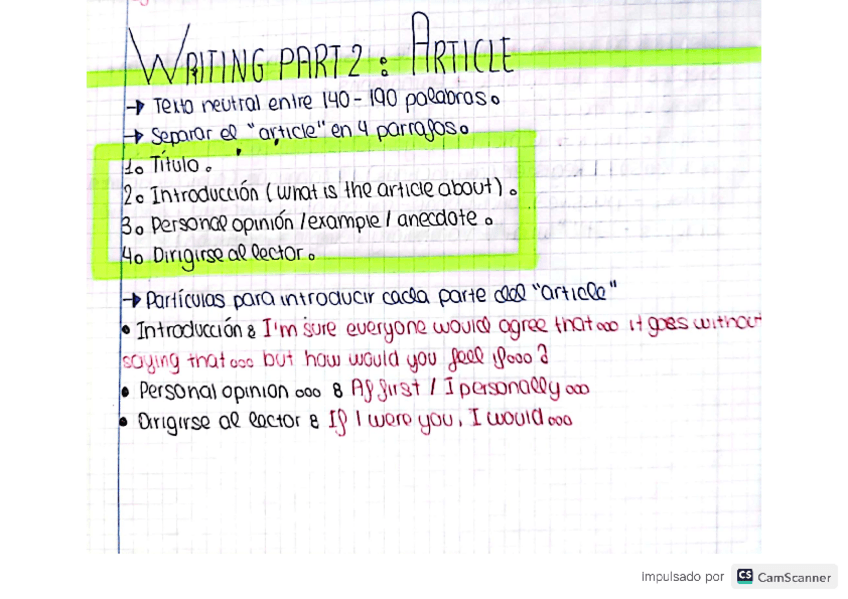 WRITING PART 2: ARTICLE
→ Texto neutral entre 140-190 palabras.
→ Separar el "article" en 4 parrafos.
1. Título.
2. Introducción (what is the article about).
3. Personal opinión / example / anecdote.
4. Dirigirse al lector.
→ Partículas para introducir cada parte del "article"
• Introducción: I'm sure everyone would agree that... it goes without
saying that... but how would you feel if...?
• Personal opinion...: At first / I personally...
• Dirigirse al lector: If I were you, I would...
Impulsado por CS CamScanner